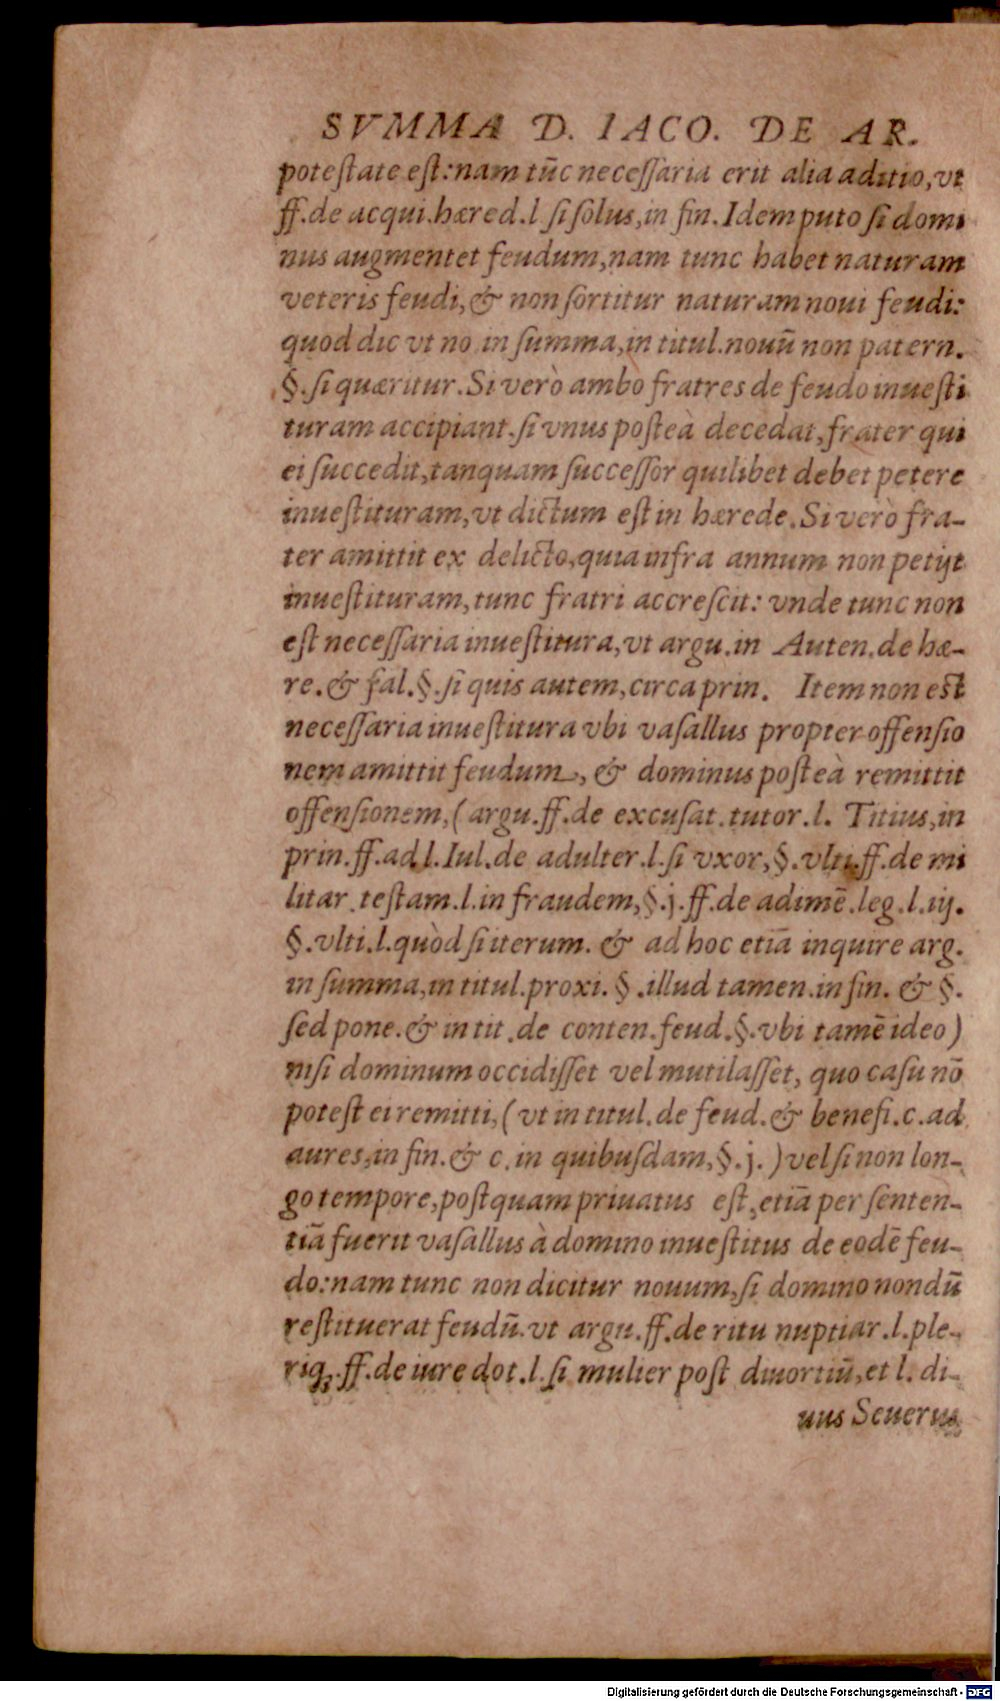 SVMMA D. IACO. DE AR.
poteſtate eſt: nam tūc neceſſaria erit alia aditio, vt
ff. de acqui. hæred. l ſi ſolus, in fin. Idem puto ſi domi
nus augmentet feudum, nam tunc habet naturam
veteris feudi, & non ſortitur naturam noui feudi:
quod dic vt no in ſumma, in titul. nouū non patern.
§. ſi quæritur. Si verò ambo fratres de feudo inueſti
turam accipiant. ſi vnus poſteà decedat, frater qui
ei ſuccedit, tanquam ſucceſſor quilibet debet petere
inueſtituram, vt dictum eſt in hærede. Si verò fra-
ter amittit ex delicto, quia infra annum non petijt
inueſtituram, tunc fratri accreſcit: vnde tunc non
eſt neceſſaria inueſtitura, vt argu. in Auten. de hæ-
re. & fal. §. ſi quis autem, circa prin. Item non eſt
neceſſaria inueſtitura vbi vaſallus propter offenſio
nem amittit feudum, & dominus poſteà remittit
offenſionem, (argu. ff. de excuſat. tutor. l. Titius, in
prin. ff. ad l. Iul. de adulter. l. ſi vxor, §. vlti. ff. de mi
litar. teſtam. l. in fraudem, §. j. ff. de adimē. leg. l. iij.
§. vlti. l. quòd ſi iterum. & ad hoc etiā inquire arg.
in ſumma, in titul. proxi. §. illud tamen. in fin. & §.
ſed pone. & in tit. de conten. feud. §. vbi tamē ideo)
niſi dominum occidiſſet vel mutilaſſet, quo caſu nō
poteſt ei remitti, (vt in titul. de feud. & benefi. c. ad
aures, in fin. & c. in quibuſdam, §. j.) vel ſi non lon-
go tempore, poſtquam priuatus eſt, etiā per ſenten-
tiā fuerit vaſallus à domino inueſtitus de eodē feu-
do: nam tunc non dicitur nouum, ſi domino nondū
reſtituerat feudū. vt argu. ff. de ritu nuptiar. l. ple-
riq;. ff. de iure dot. l. ſi mulier poſt diuortiū, et l. di-
uus Seuerus
Digitalisierung gefördert durch die Deutsche Forschungsgemeinschaft - DFG